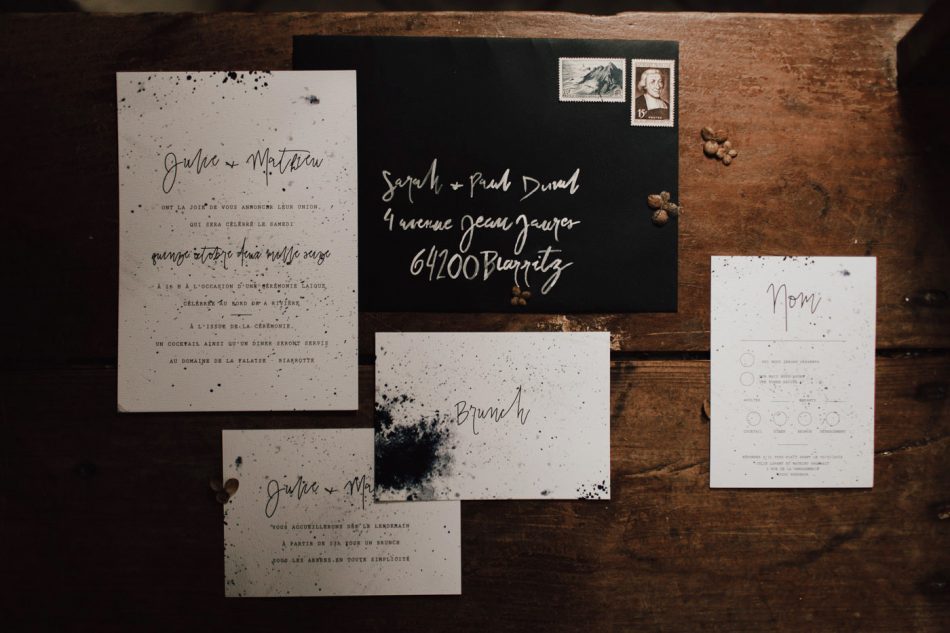 Julie + Mathieu
ONT LA JOIE DE VOUS ANNONCER LEUR UNION,
QUI SERA CÉLÉBRÉ LE SAMEDI
quinze octobre deux mille seize
À 15 H À L'OCCASION D'UNE CÉRÉMONIE LAÏQUE
CÉLÉBRÉE AU BORD DE A RIVIÈRE
À L'ISSUE DE LA CÉRÉMONIE,
UN COCKTAIL AINSI QU'UN DINER SERONT SERVIS
AU DOMAINE DE LA FALAISE - BIARROTTE
15F
POSTES
Sarah + Paul Duval
4 avenue Jean Jaures
64200 Biarritz
Brunch
Julie + Ma
VOUS ACCUEILLERONS DÈS LE LENDEMAIN
À PARTIR DE 12h POUR UN BRUNCH
SOUS LES ARBRES EN TOUTE SIMPLICITÉ
Nom
OUI NOUS SERONS PRÉSENTS
ADULTES
ENFANTS
COCKTAIL DINER BRUNCH HÉBERGEMENT